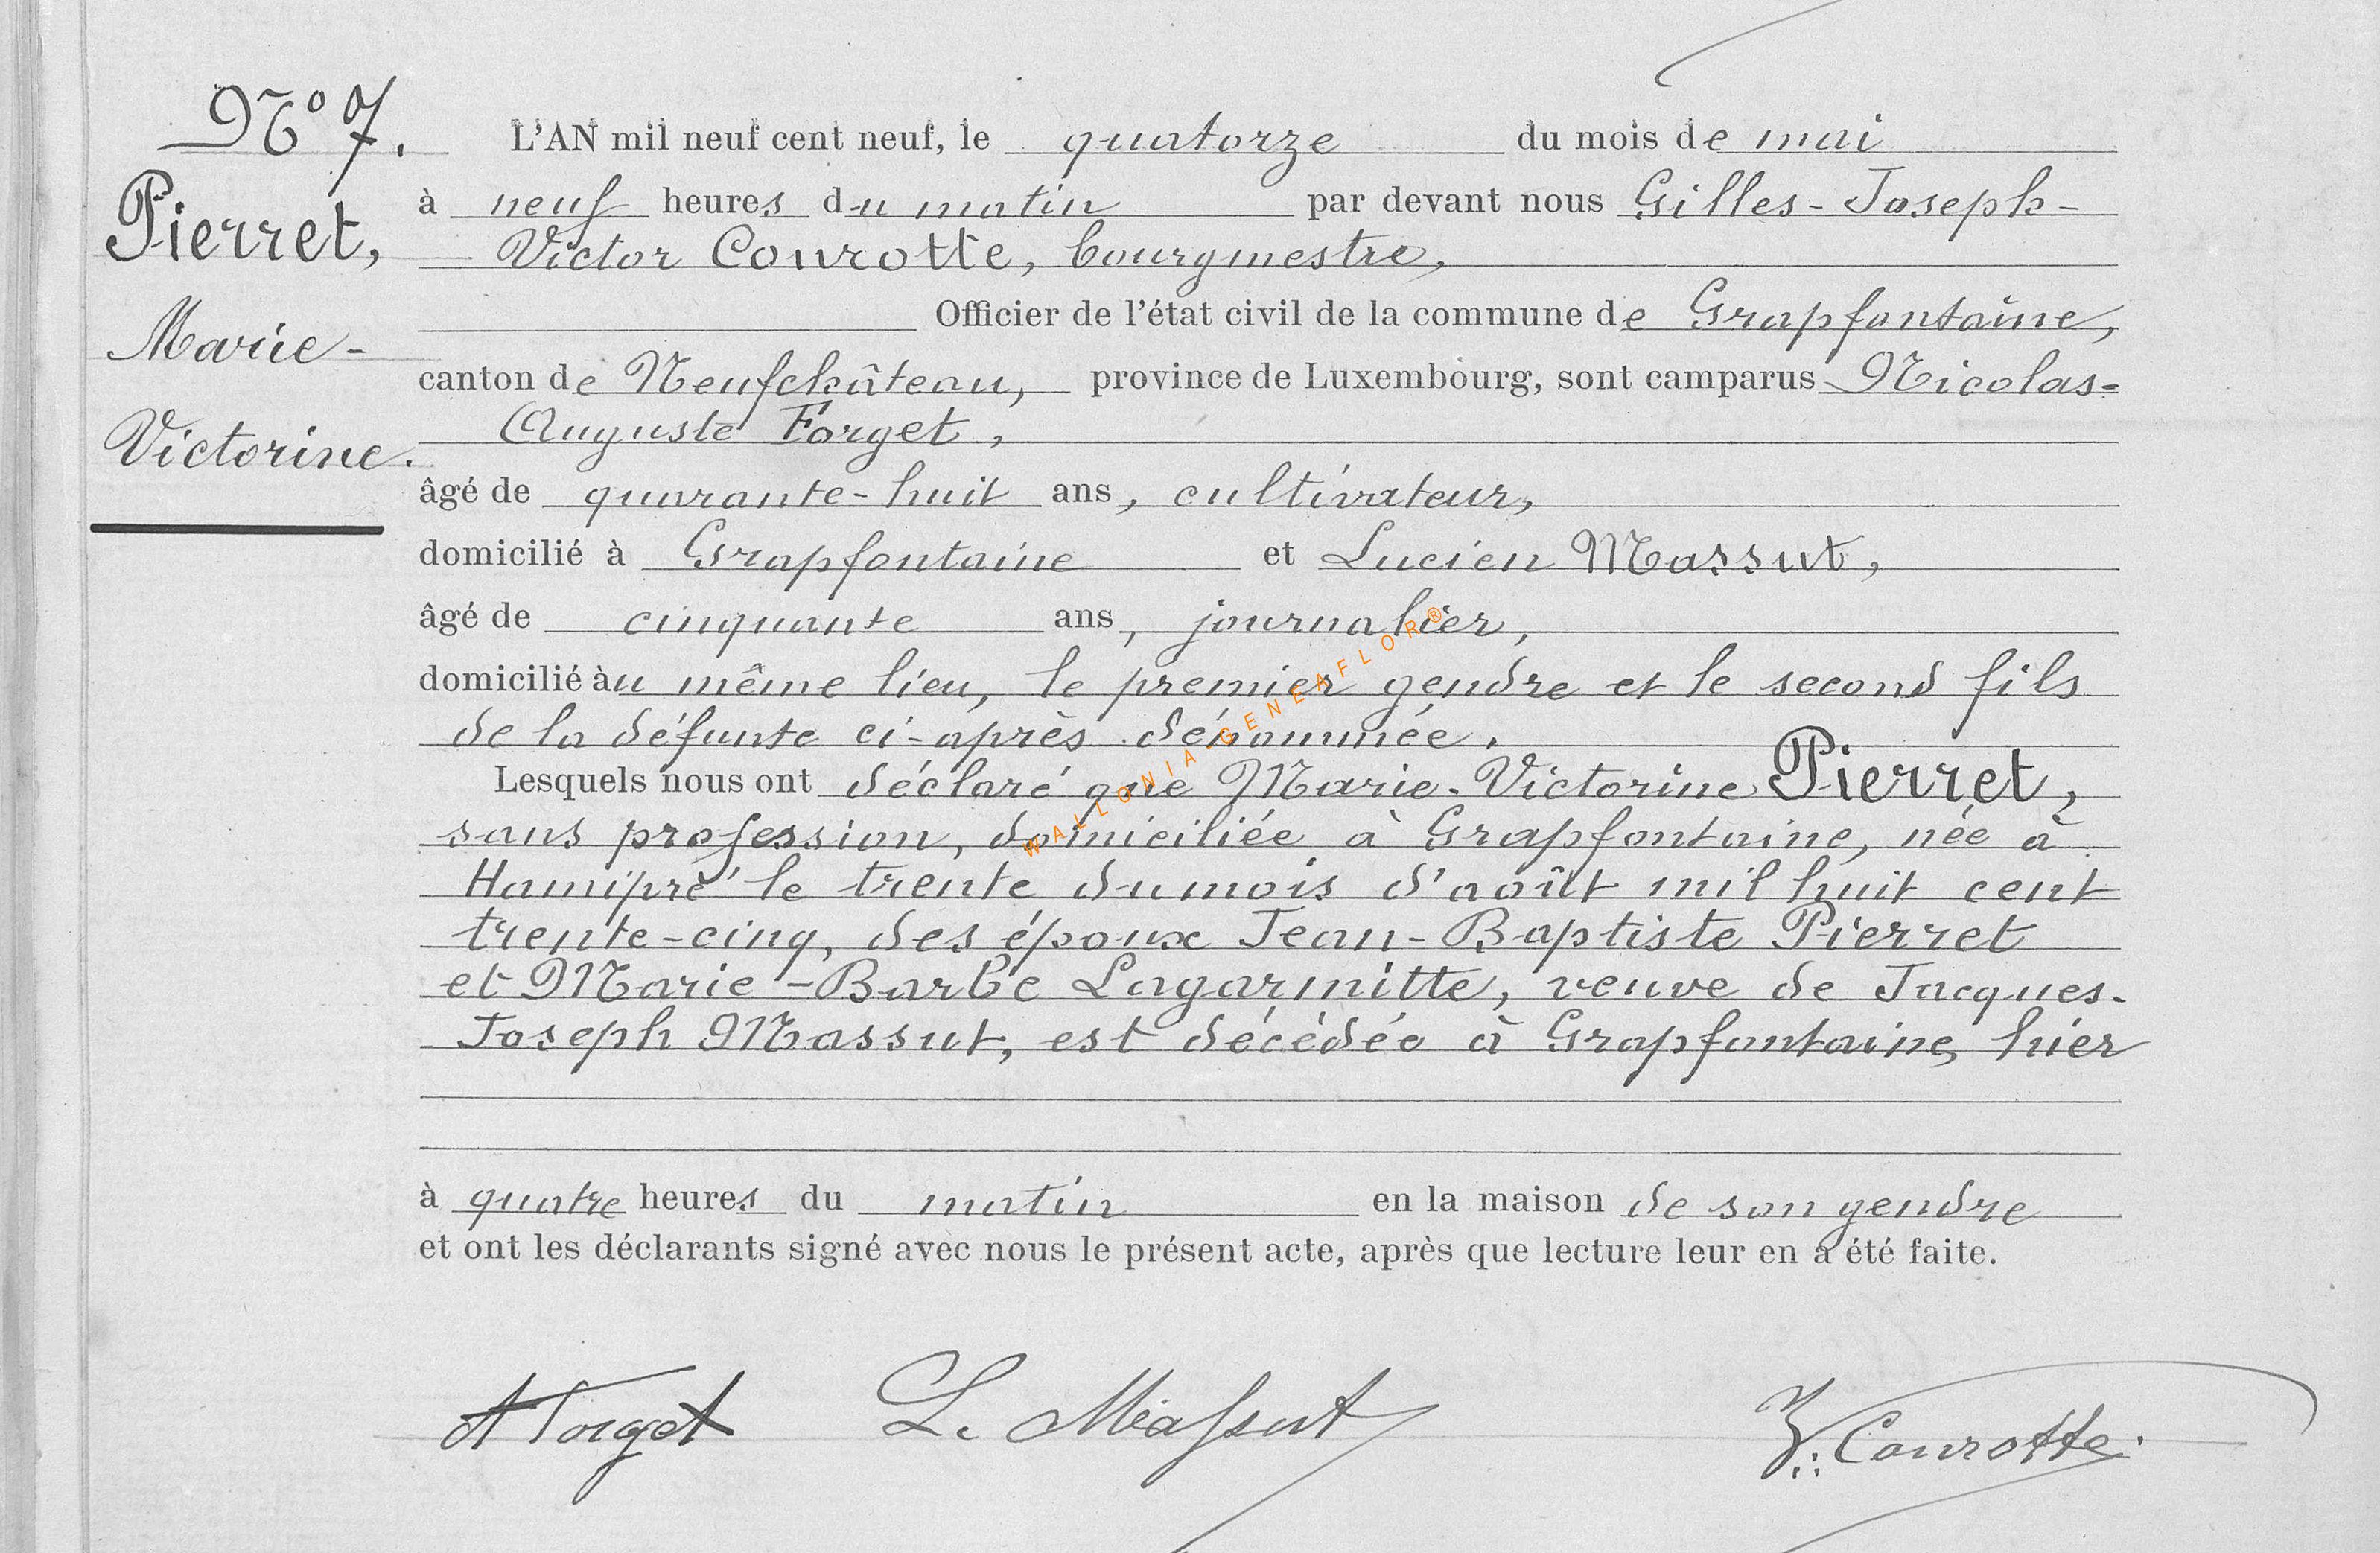 N° 7.
Pierret,
Marie-
Victorine.
L'AN mil neuf cent neuf, le quatorze du mois de mai
à neuf heures du matin par devant nous Gilles-Joseph-
Victor Courotte, bourgmestre,
Officier de l'état civil de la commune de Grapfontaine,
canton de Neufchâteau, province de Luxembourg, sont camparus Nicolas-
Auguste Forget,
âgé de quarante-huit ans, cultivateur,
domicilié à Grapfontaine et Lucien Massut,
âgé de cinquante ans, journalier,
domicilié àu même lieu, le premier gendre et le second fils
de la défunte ci-après dénommée.
Lesquels nous ont déclaré que Marie-Victorine Pierret,
sans profession, domiciliée à Grapfontaine, née à
Hamipré le trente du mois d'août mil huit cent
trente-cinq, des époux Jean-Baptiste Pierret
et Marie-Barbe Lagarmitte, veuve de Jacques-
Joseph Massut, est décédée à Grapfontaine, hier
à quatre heures du matin en la maison de son gendre
et ont les déclarants signé avec nous le présent acte, après que lecture leur en a été faite.
A Forget L. Massut V. Courotte
WALLONIA GENEAFLOR®